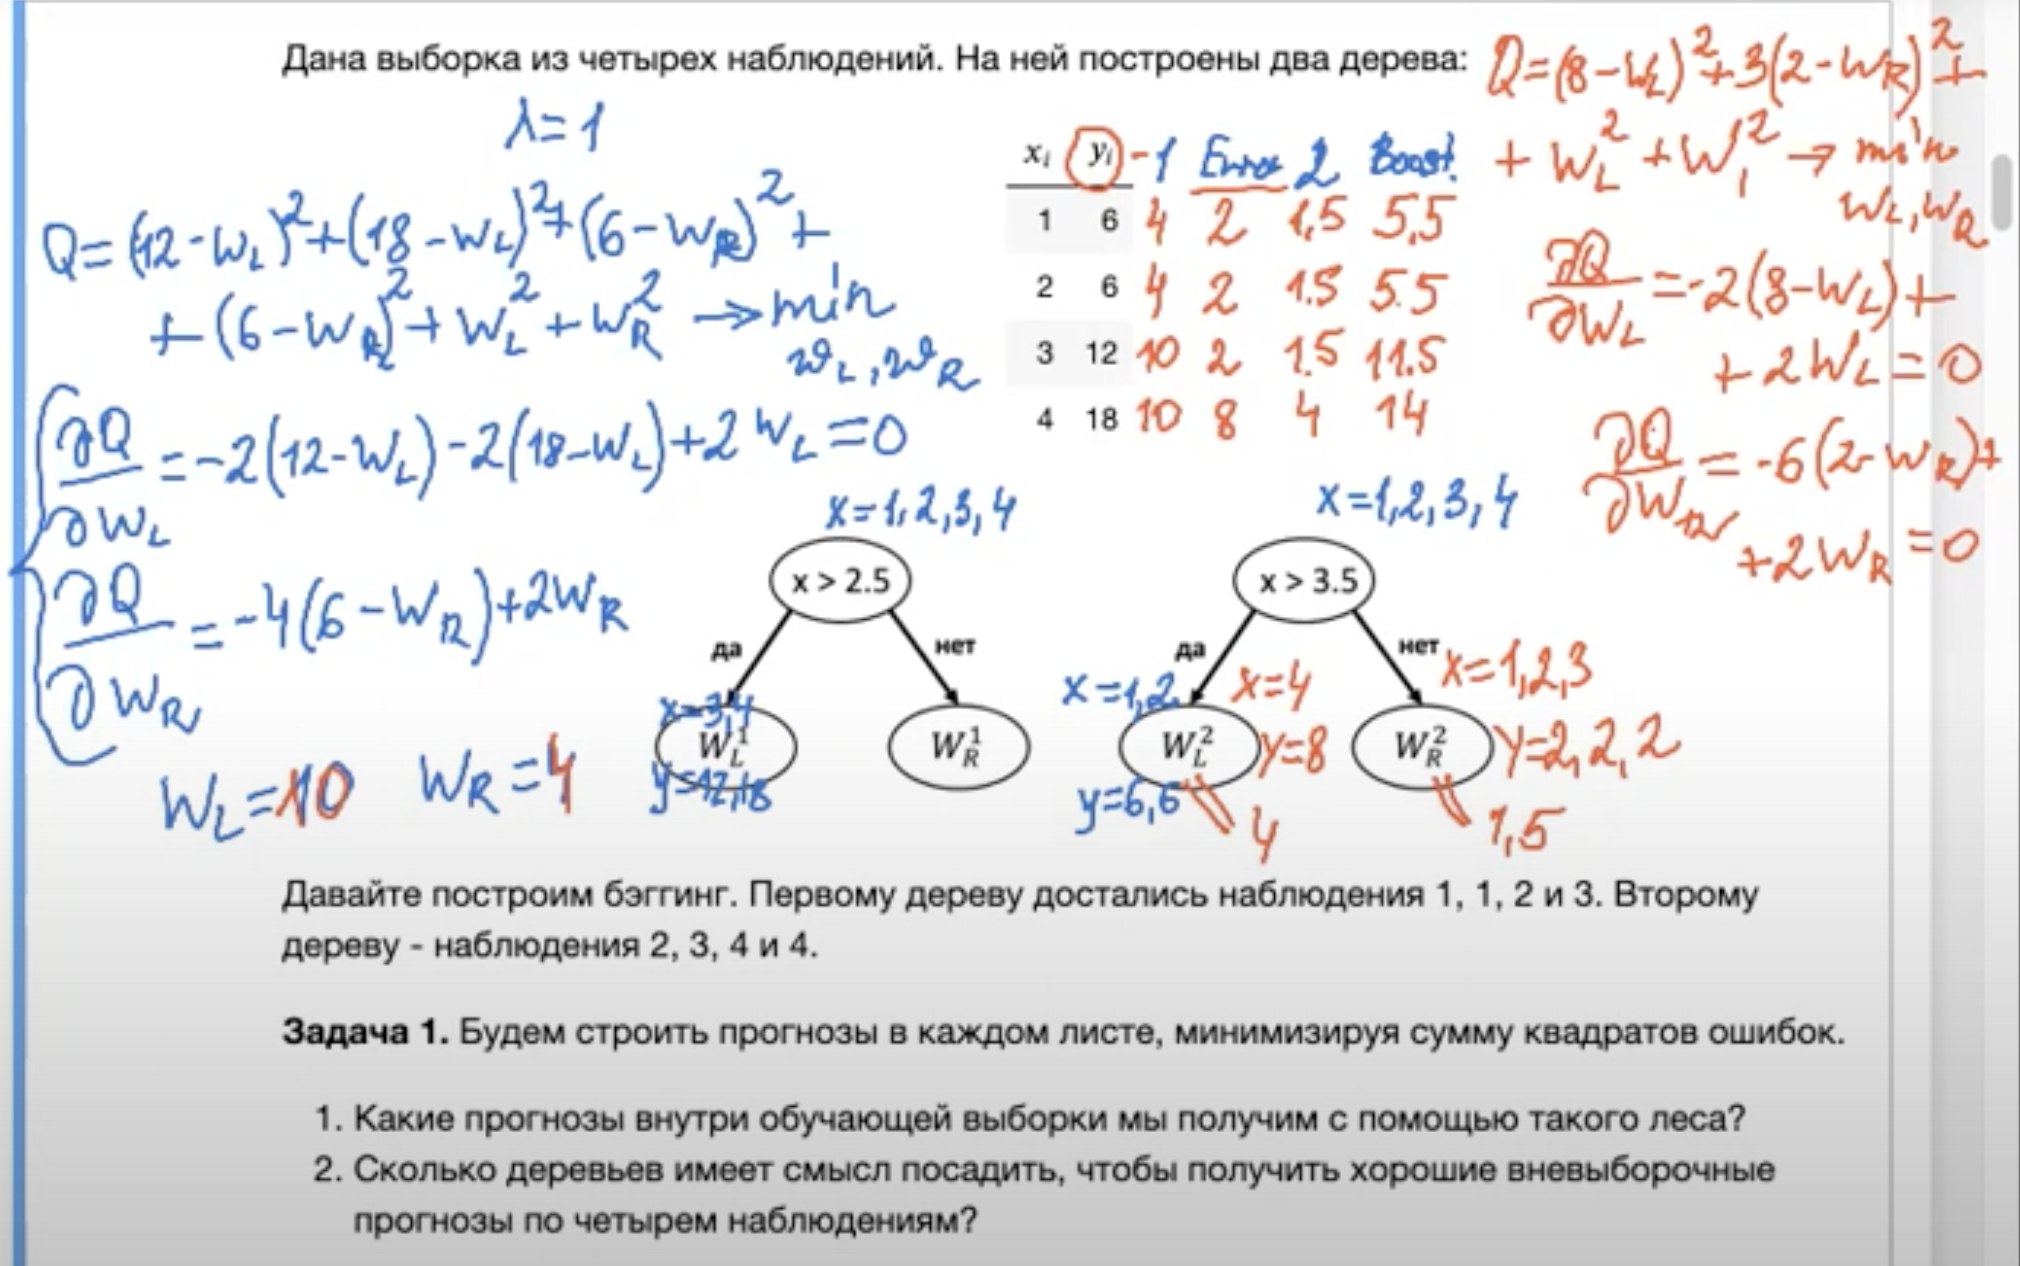 Дана выборка из четырех наблюдений. На ней построены два дерева:
Q=(8-W_L)^2+3(2-W_R)^2+
+W_L^2+W_1^2→min
W_L,W_R
λ=1
x_i y_i -1 Error 2 Boost.
1 6 4 2 1,5 5,5
2 6 4 2 1.5 5.5
3 12 10 2 1.5 11.5
4 18 10 8 4 14
Q=(12-W_L)^2+(18-W_L)^2+(6-W_R)^2+
+(6-W_R)^2+W_L^2+W_R^2→min
w_L,w_R
∂Q/∂W_L=-2(12-W_L)-2(18-W_L)+2W_L=0
∂Q/∂W_R=-4(6-W_R)+2W_R
W_L=10 W_R=4
∂Q/∂W_L=-2(8-W_L)+
+2W_L=0
∂Q/∂W_R=-6(2-W_R)+
+2W_R=0
x=1,2,3,4
x > 2.5
да нет
x=3,4
W_L^1 W_R^1
y=12,18
x=1,2,3,4
x > 3.5
да нет
x=1,2 x=4 x=1,2,3
W_L^2 y=8 W_R^2 y=2,2,2
y=6,6 4 1,5
Давайте построим бэггинг. Первому дереву достались наблюдения 1, 1, 2 и 3. Второму
дереву - наблюдения 2, 3, 4 и 4.
Задача 1. Будем строить прогнозы в каждом листе, минимизируя сумму квадратов ошибок.
1. Какие прогнозы внутри обучающей выборки мы получим с помощью такого леса?
2. Сколько деревьев имеет смысл посадить, чтобы получить хорошие вневыборочные
прогнозы по четырем наблюдениям?